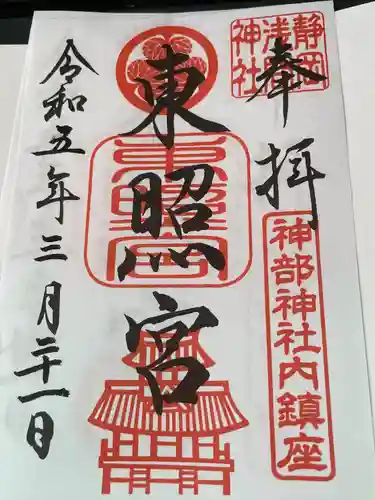 奉拝
静岡
浅間
神社
神部神社内鎮座
東照宮
東照宮
令和五年三月二十一日